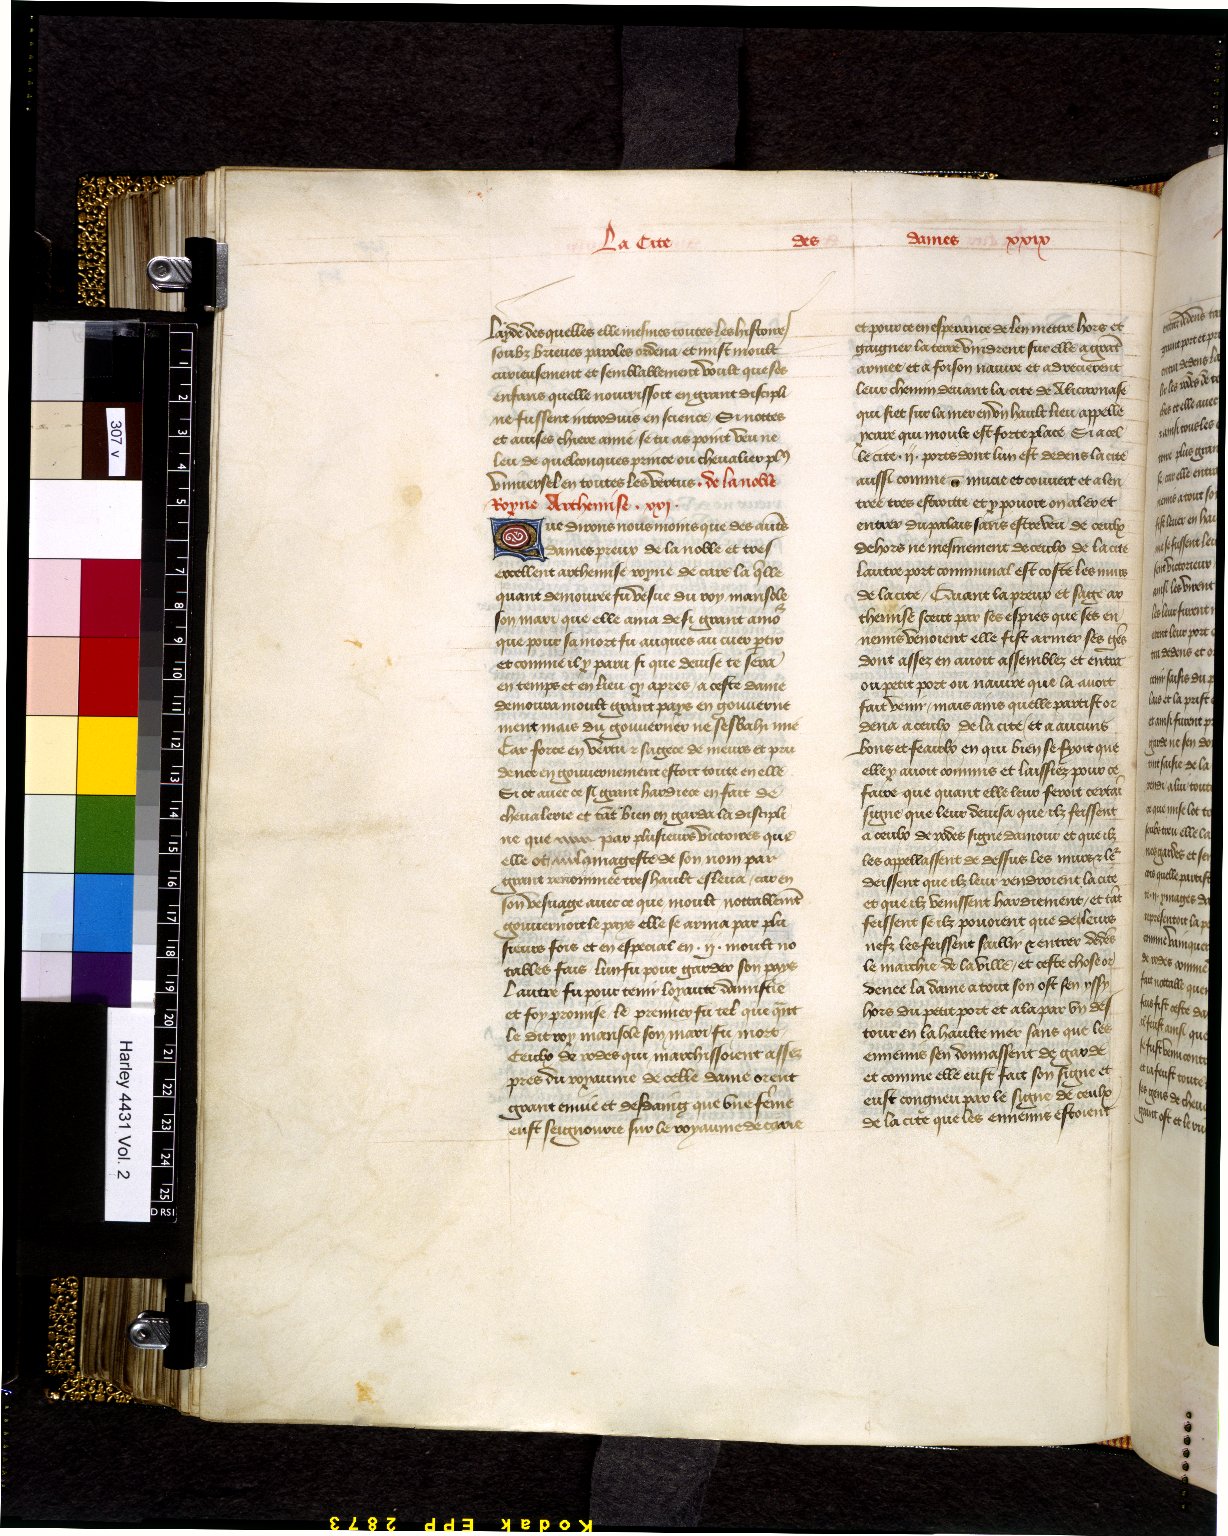 La Cite des dames xxix
layde desquelles elle mesmes toutes les histoires
soubz brieues paroles ordena et mist moult
curieusement et semblablement voult que ses
enfans quelle nourrissoit en grant discipli
ne fussent introduis en science Si nottes
et auises chiere amie se tu as point veu ne
leu de quelconques prince ou cheualier pl9
vniuersel en toutes les vertus . de la noble
Royne Arthemise . xxvi .
Que dirons nous moins que des autres
dames preux de la noble et tres
excellent arthemise royne de care la qlle
quant demouree fu vesue du roy mansole
son mari que elle ama de si grant amo
que pour sa mort fu auques au cuer
et comme il y paru si que deuise te sera
en temps et en lieu cy apres / a ceste dame
demoura moult grant pays en gouuerne
ment mais du gouuerner ne sesbahi mie
Car force en vertu sagece de meurs et pru
dence en gouuernement estoit toute en elle
Si ot auec ce si grant hardiece en fait de
cheualerie et tant bien en garda la discipli
ne que par plusieurs victoires que
elle ot magesté de son nom par
grant renommee tres hault esleua / car en
son vesuage auec ce que moult nottablement
gouuernoit le pays elle se arma par plu
sieurs fois et en especial en . ij . moult no
tables fais lun fu pour garder son pays
Lautre fu pour tenir loyauté damistie
et foy promise le premier fu tel que quant
le dit roy mansole son mari fu mort
Ceulx de rodes qui marchissoient assez
pres du royaume de celle dame orent
grant enuie et desdaing que vne feme
eust seignourie sur le royaume de carie
et pour ce en esperance de len mettre hors et
gaigner la terre vindrent sur elle a grant
armee et a foison nauire et adrecierent
leur chemin deuant la cite de Alicarnase
qui siet sur la mer en vn hault lieu appelle
ycare qui moult est forte place Si a cel
le cite . ij . pors dont lun est dedens la cite
aussi comme mucie et couuert et a len
tree tres estroitte et y pouoit on aler et
entrer du palais sans estre veu de ceulx
dehors ne mesmement de ceulx de la cite
lautre port communal est costé les murs
de la cite / Quant la preux et sage ar
themise sceut par ses espies que ses en
nemis venoient elle fist armer ses gens
dont assez en auoit assemblez et entra
ou petit port ou nauire que la auoit
fait venir / mais ains quelle partist or
dena a ceulx de la cite / et a aucuns
bons et feaulx en qui bien se fyoit que
elle y auoit commis et laissiez pour ce
faire que quant elle leur feroit certain
signe que leur deuisa que ilz feissent
a ceulx de rodes signe damour et que ilz
les appellassent de dessus les murs
deissent que ilz leur rendroient la cite
et que ilz venissent hardiement / et tant
feissent se ilz pouoient que de leurs
nefz les feissent saillir et entrer dedens
le marchie de la ville / et ceste chose or
denee la dame a tout son ost sen yssy
hors du petit port et ala par vn des
tour en la haulte mer sans que les
ennemis sen donnassent de garde
et comme elle eust fait son signe et
eust congneu par le signe de ceulx
de la cite que les ennemis estoient
307 v
Harley 4431 Vol. 2
1
2
3
4
5
7
8
9
10
11
12
13
14
15
16
17
18
19
20
21
22
23
24
25
Kodak EPP 2873